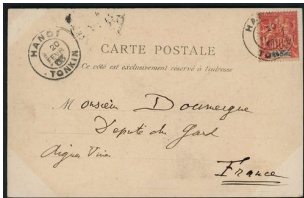 HANOI
20
TONKIN
CARTE POSTALE
Ce côté est exclusivement réservé à l'adresse
HANOI
TONKIN
Monsieur Doumergue
Député du Gard
Aigues Vives
France